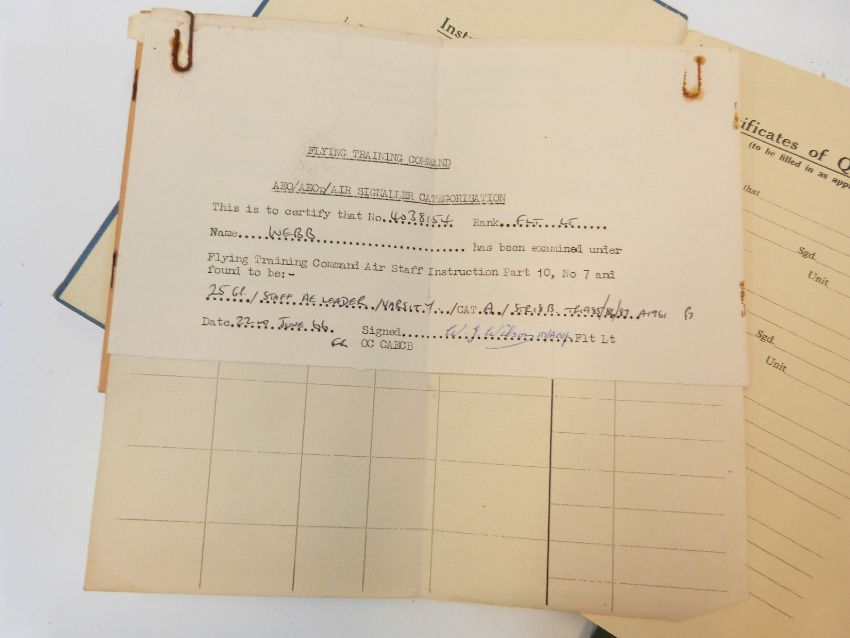 Inst
FLYING TRAINING COMMAND
AEO/AEOp/AIR SIGNALLER CATEGORISATION
This is to certify that No. 4038154 Rank FLT LT
Name WEBB has been examined under
Flying Training Command Air Staff Instruction Part 10, No 7 and
found to be:-
25 GP / STAFF AE LEADER / VARSITY / CAT A /
Date 22 JUNE 66 Signed W. J. Wilson Flt Lt
OC CAECB
ificates of Q
(to be filled in as app
that
Sgd.
Unit
Sgd.
Unit